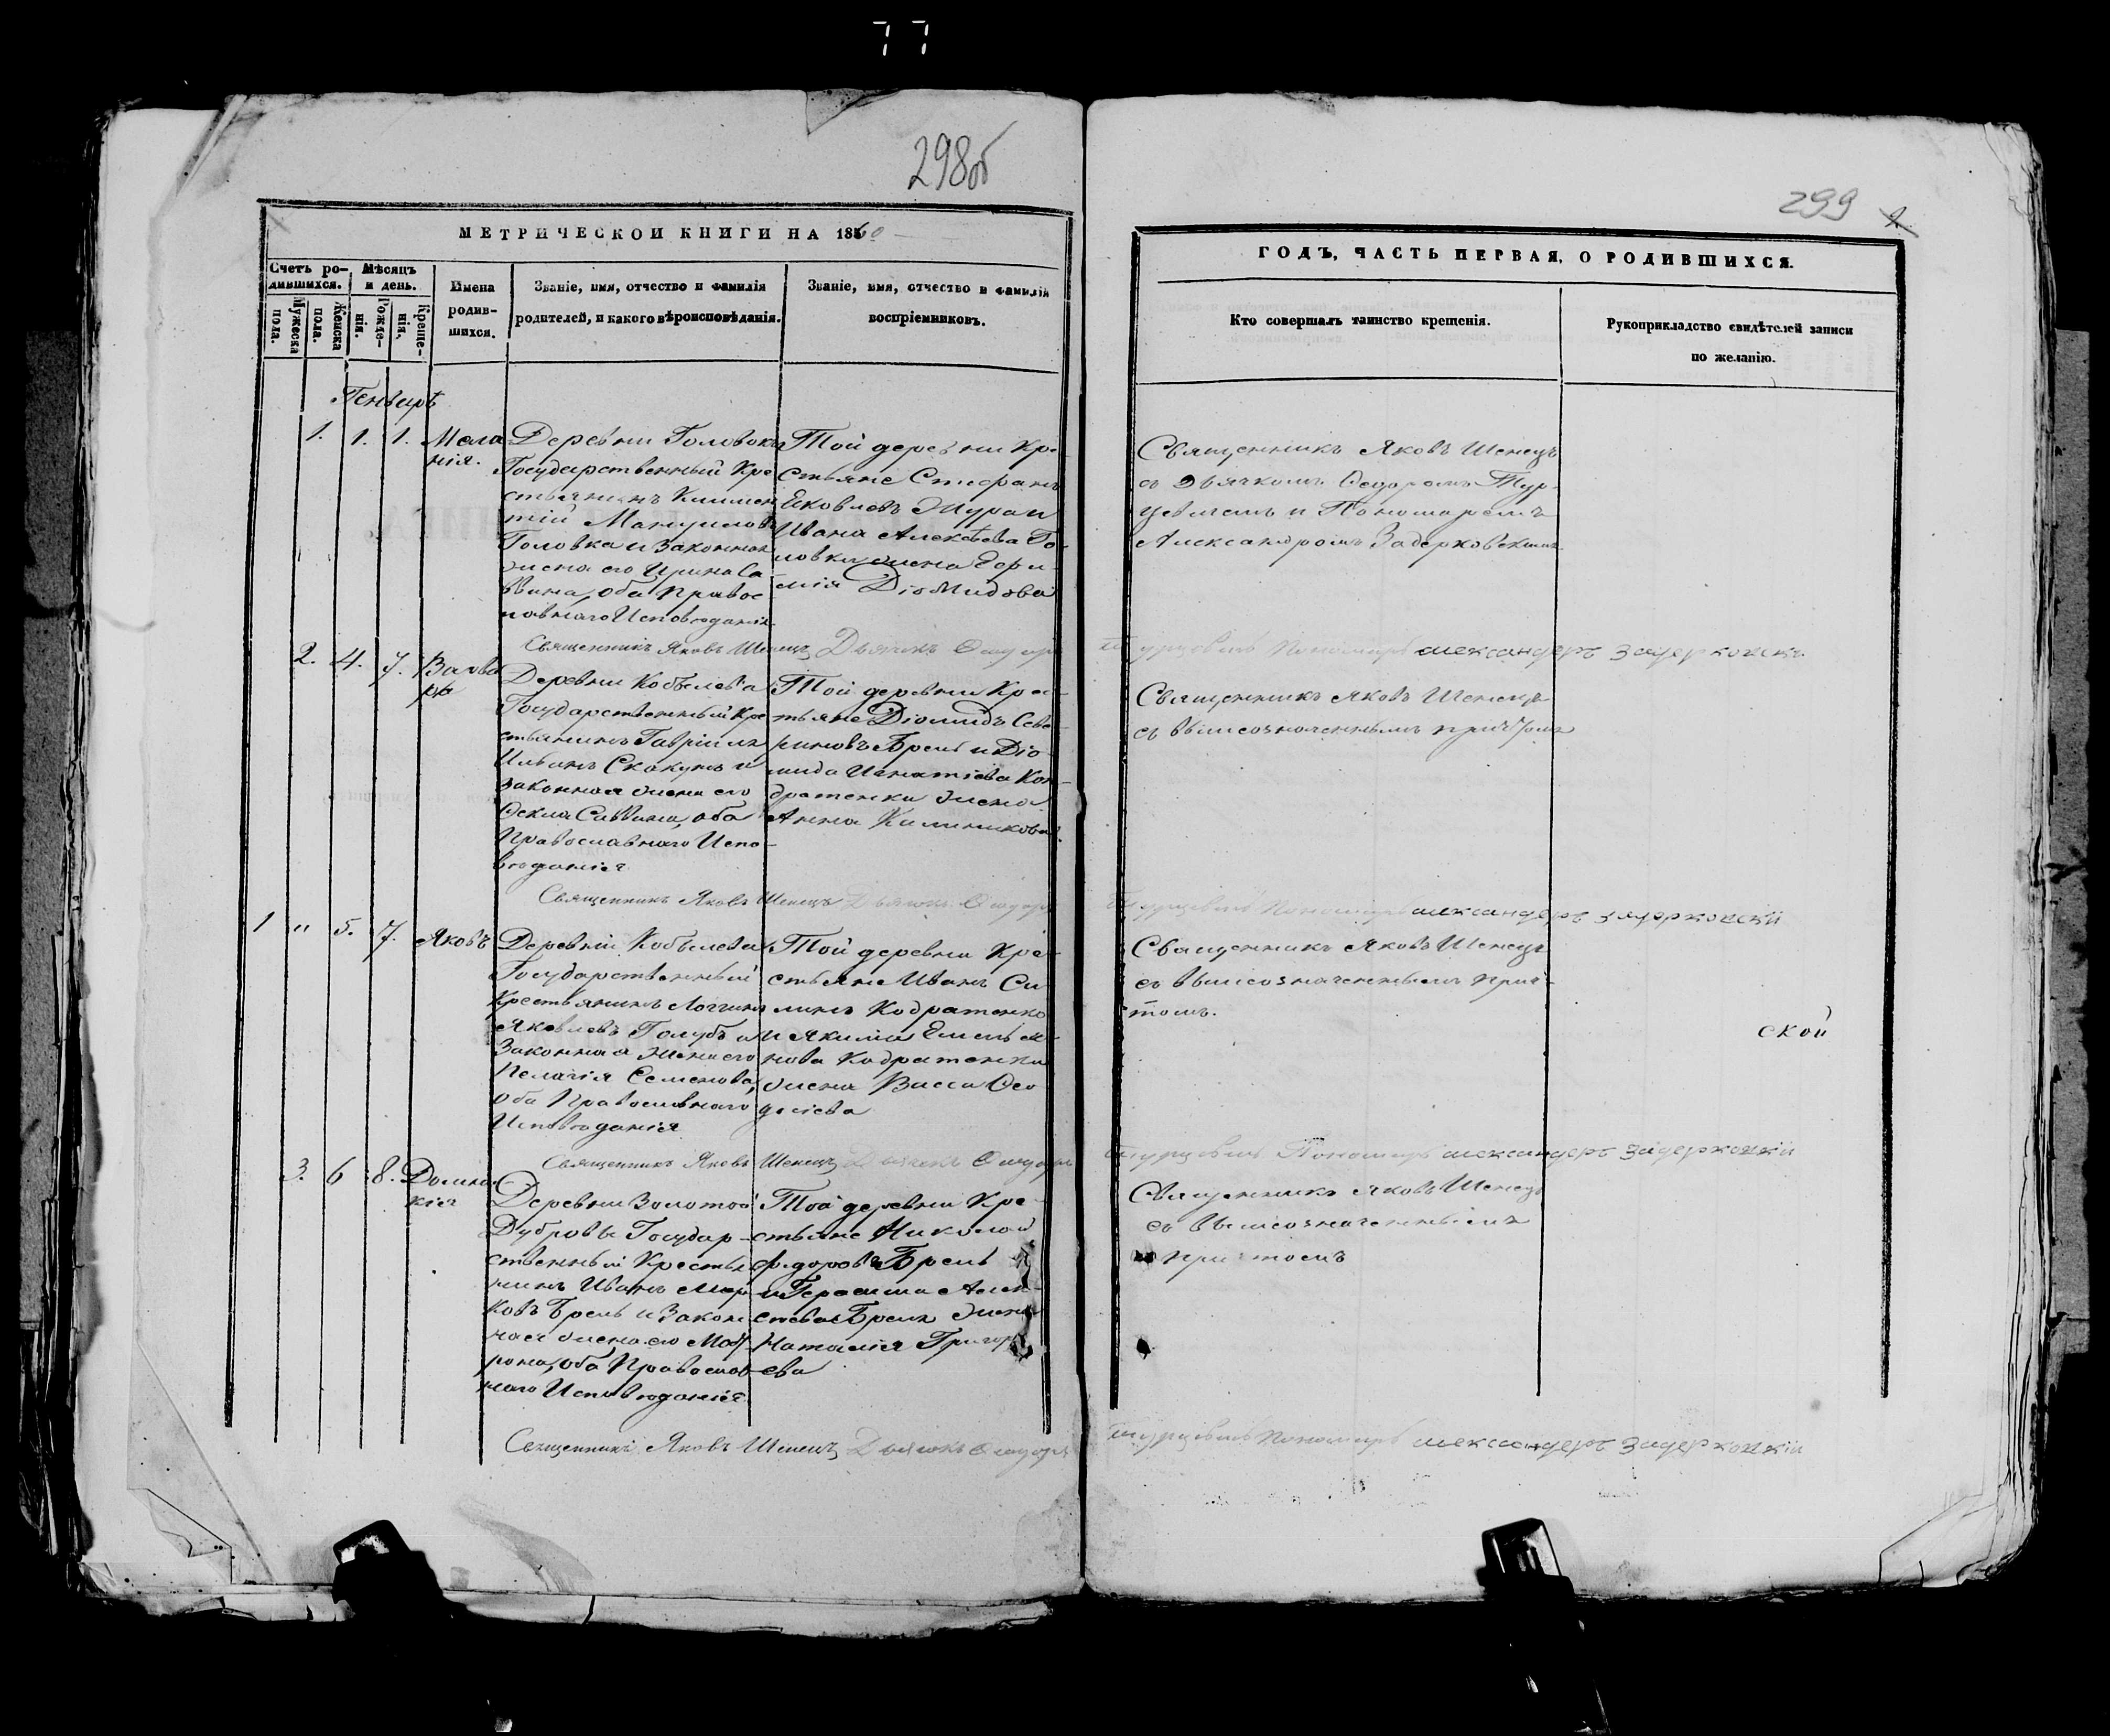 77
298об
299
МЕТРИЧЕСКОЙ КНИГИ НА 1860
Счетъ ро-
дившихся.
Мужеска
пола.
Женска
пола.
Мѣсяцъ
и день.
Рожде-
нія.
Креще-
нія.
Имена
родив-
шихся.
Званіе, имя, отчество и фамилія
родителей, и какого вѣроисповѣданія.
Званіе, имя, отчество и фамилія
воспріемниковъ.
ГОДЪ, ЧАСТЬ ПЕРВАЯ, О РОДИВШИХСЯ.
Кто совершалъ таинство крещенія.
Рукоприкладство свидѣтелей записи
по желанію.
Генварь
1. 1. 1.
Мела
нія.
Деревни Головокъ
Государственный Кре
стьянинъ Климен
тій Мануиловъ
Головка и Законная
жена его Ирина Са
ввина, оба Правос
лавнаго Исповѣданія
Той деревни Кре-
стьяне Стефанъ
Яковлевъ Журан
Ивана Алексѣева Го-
ловки жена Ефи-
мія Діомидова
Священникъ Яковъ Шенецъ
съ Дьячкомъ Ѳедоромъ Тур-
цевичемъ и Пономаремъ
Александромъ Задерковскимъ
Священникъ Яковъ Шенецъ Дьячекъ Ѳеодоръ Турцевичъ Пономарь Александеръ Задерковскі
2. 4. 7.
Варва
ра
Деревни Кобылева
Государственный Кре
стьянинъ Гавріилъ
Ильинъ Скакунъ и
Законная жена его
Ѳекла Саввина, оба
Православнаго Испо-
вѣданія
Той деревни Крес-
тьяне Діомидъ Севе
риновъ Брель и Діо-
мида Игнатіева Кон-
дратенки жена
Анна Калиникова
Священникъ Яковъ Шенецъ
съ вышеозначеннымъ причтомъ
Священникъ Яковъ Шенецъ Дьячекъ Ѳеодоръ Турцевичъ Пономарь Александеръ Задерковскій
1 " 5. 7.
Яковъ
Деревни Кобылева
Государственный
Крестьянинъ Логгинъ
Яковлевъ Голубъ и
Законная жена его
Пелагія Семенова,
оба Православнаго
Исповѣданія
Той деревни Кре-
стьяне Иванъ Си
линъ Кодратенко
и Якима Емелья-
нова Кодратенки
жена Васса Ѳео
досіева
Священникъ Яковъ Шенецъ
съ вышеозначеннымъ прич-
томъ.
ской
Священникъ Яковъ Шенецъ Дьячекъ Ѳеодоръ Турцевичъ Пономарь Александеръ Задерковскій
3. 6 8.
Домни
кія
Деревни Золотой
Дубровы Государ-
ственный Крестья
нинъ Иванъ Мар
ковъ Брель и Закон
ная жена его Мат
рона, оба Православ
наго Исповѣданія
Той деревни Кре-
стьяне Николай
Ѳедоровъ Брель
и Герасима Алек-
сѣева Бреля жена
Наталія Григорь
ева
Священникъ Яковъ Шенецъ
съ вышеозначеннымъ
причтомъ
Священникъ Яковъ Шенецъ Дьячекъ Ѳеодоръ Турцевичъ Пономарь Александеръ Задерковскій